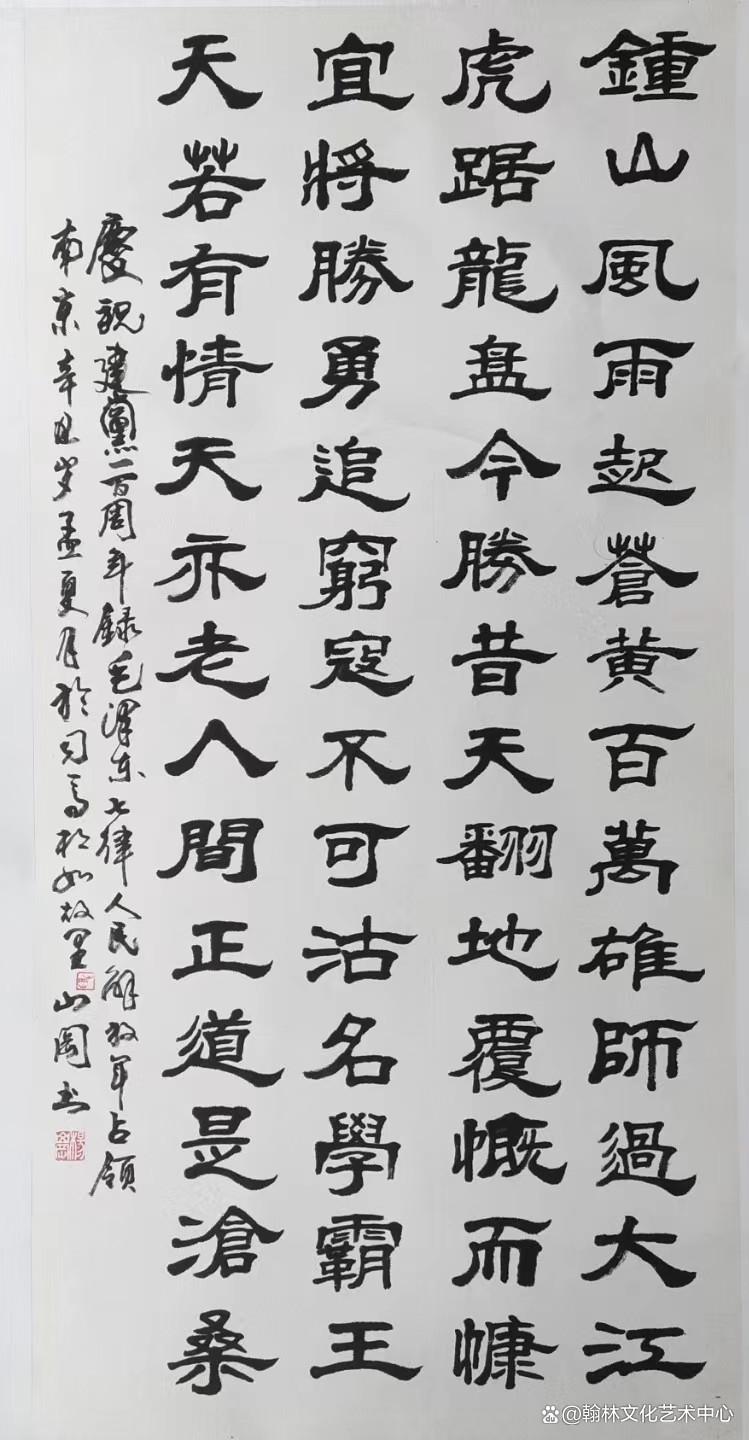 鍾山風雨起蒼黄百萬雄師過大江
虎踞龍盘今勝昔天翻地覆慨而慷
宜將勝勇追窮寇不可沽名學霸王
天若有情天亦老人間正道是滄桑
慶祝建黨一百周年録毛澤東七律人民解放军占領
南京辛丑岁孟夏月於司马相如故里山书
@翰林文化艺术中心